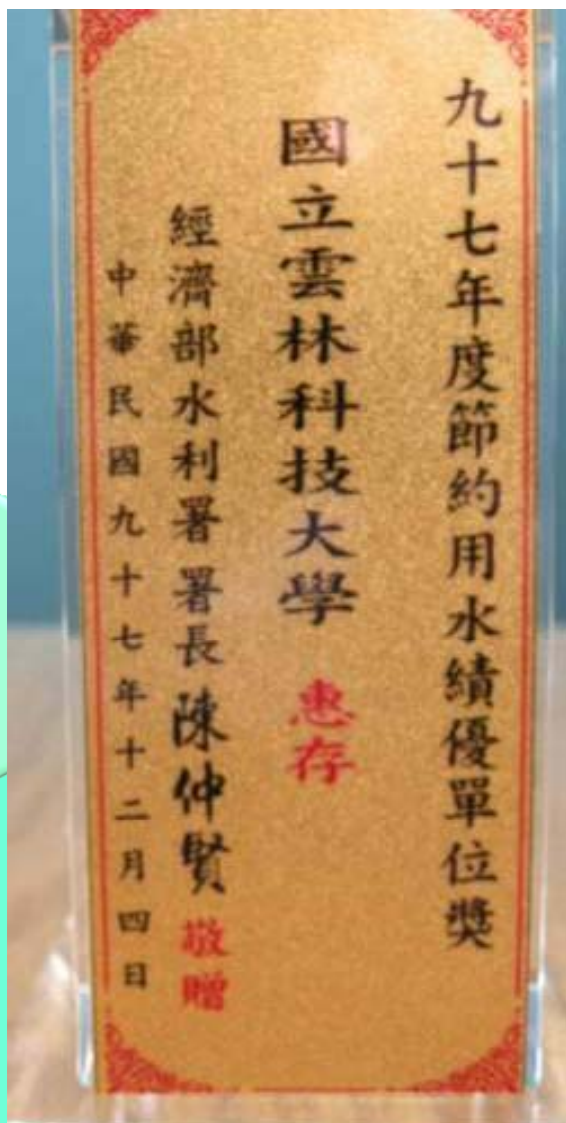 九十七年度節約用水績優單位獎
國立雲林科技大學 惠存
經濟部水利署署長陳仲賢 敬贈
中華民國九十七年十二月四日